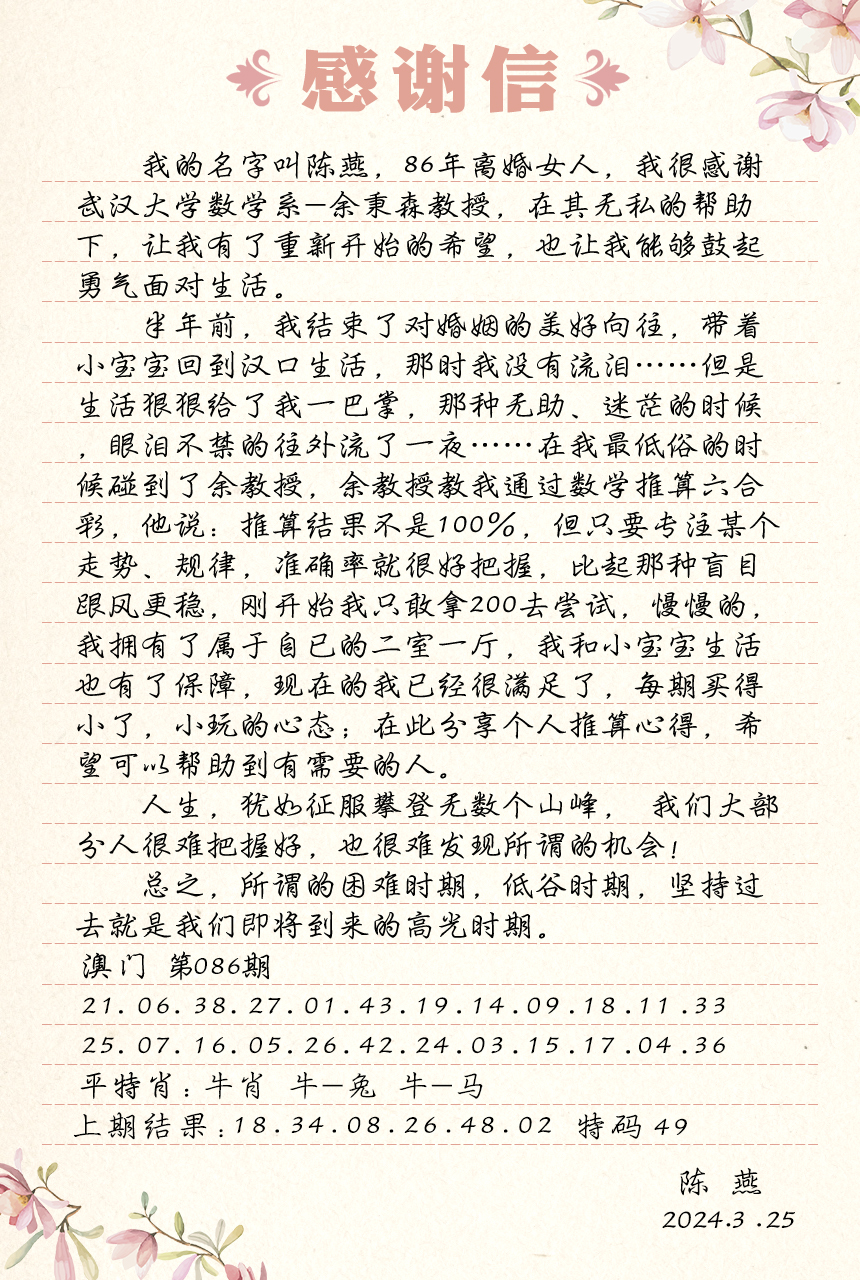 感谢信
我的名字叫陈燕，86年离婚女人，我很感谢
武汉大学数学系—余秉森教授，在其无私的帮助
下，让我有了重新开始的希望，也让我能够鼓起
勇气面对生活。
半年前，我结束了对婚姻的美好向往，带着
小宝宝回到汉口生活，那时我没有流泪……但是
生活狠狠给了我一巴掌，那种无助、迷茫的时候
，眼泪不禁的往外流了一夜……在我最低俗的时
候碰到了余教授，余教授教我通过数学推算六合
彩，他说：推算结果不是100%，但只要专注某个
走势、规律，准确率就很好把握，比起那种盲目
跟风更稳，刚开始我只敢拿200去尝试，慢慢的，
我拥有了属于自已的二室一厅，我和小宝宝生活
也有了保障，现在的我已经很满足了，每期买得
小了，小玩的心态；在此分享个人推算心得，希
望可以帮助到有需要的人。
人生，犹如征服攀登无数个山峰， 我们大部
分人很难把握好，也很难发现所谓的机会！
总之，所谓的困难时期，低谷时期，坚持过
去就是我们即将到来的高光时期。
澳门 第086期
21.06.38.27.01.43.19.14.09.18.11.33
25.07.16.05.26.42.24.03.15.17.04.36
平特肖：牛肖 牛—兔 牛—马
上期结果：18.34.08.26.48.02 特码 49
陈 燕
2024.3.25